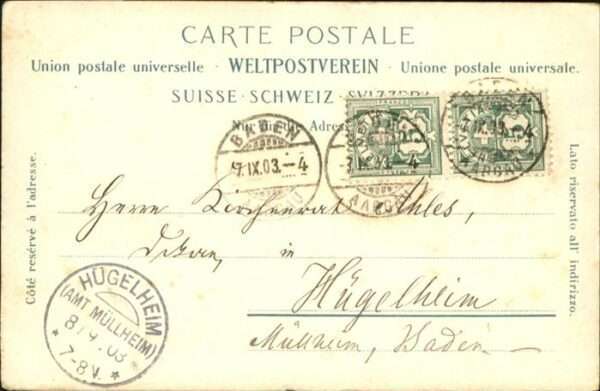 CARTE POSTALE
Union postale universelle · WELTPOSTVEREIN · Unione postale universale.
SUISSE · SCHWEIZ · SVIZZERA
Nur für die Adresse
BADEN
7.IX.03.–4
AARGAU
Côté resérvé à l'adresse.
Lato riservato all' indirizzo.
Herrn Kirchenrat Ahles,
Dekan, in
Hügelheim
Müllheim, Baden
HÜGELHEIM
(AMT MÜLLHEIM)
8/9.03
* 7-8V. *